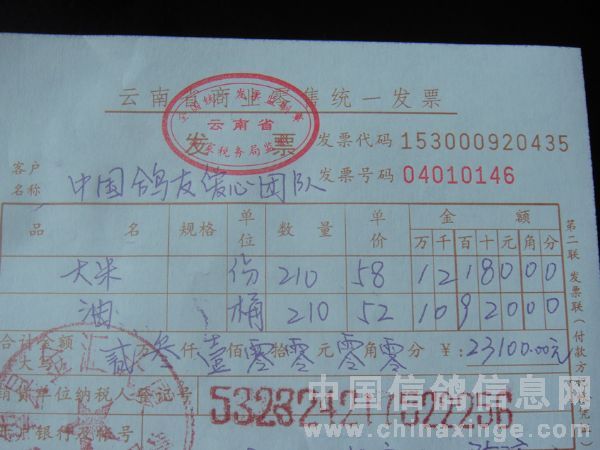 云南省商业零售统一发票
全国统一发票监制章
云南省
国家税务局监制
发 票
发票代码 153000920435
发票号码 04010146
客户名称 中国鸽友爱心团队
品 名 规格 单位 数量 单价 金额
万 千 百 十 元 角 分
大米 份 210 58 1 2 1 8 0 0 0
油 桶 210 52 1 0 9 2 0 0 0
合计金额
大写 贰万叁仟壹佰零拾零元零角零分 ¥:23100.00元
销货单位纳税人登记号
开户银行及帐号
第二联 发票联 (付款方
中国信鸽信息网
www.chinaxinge.com